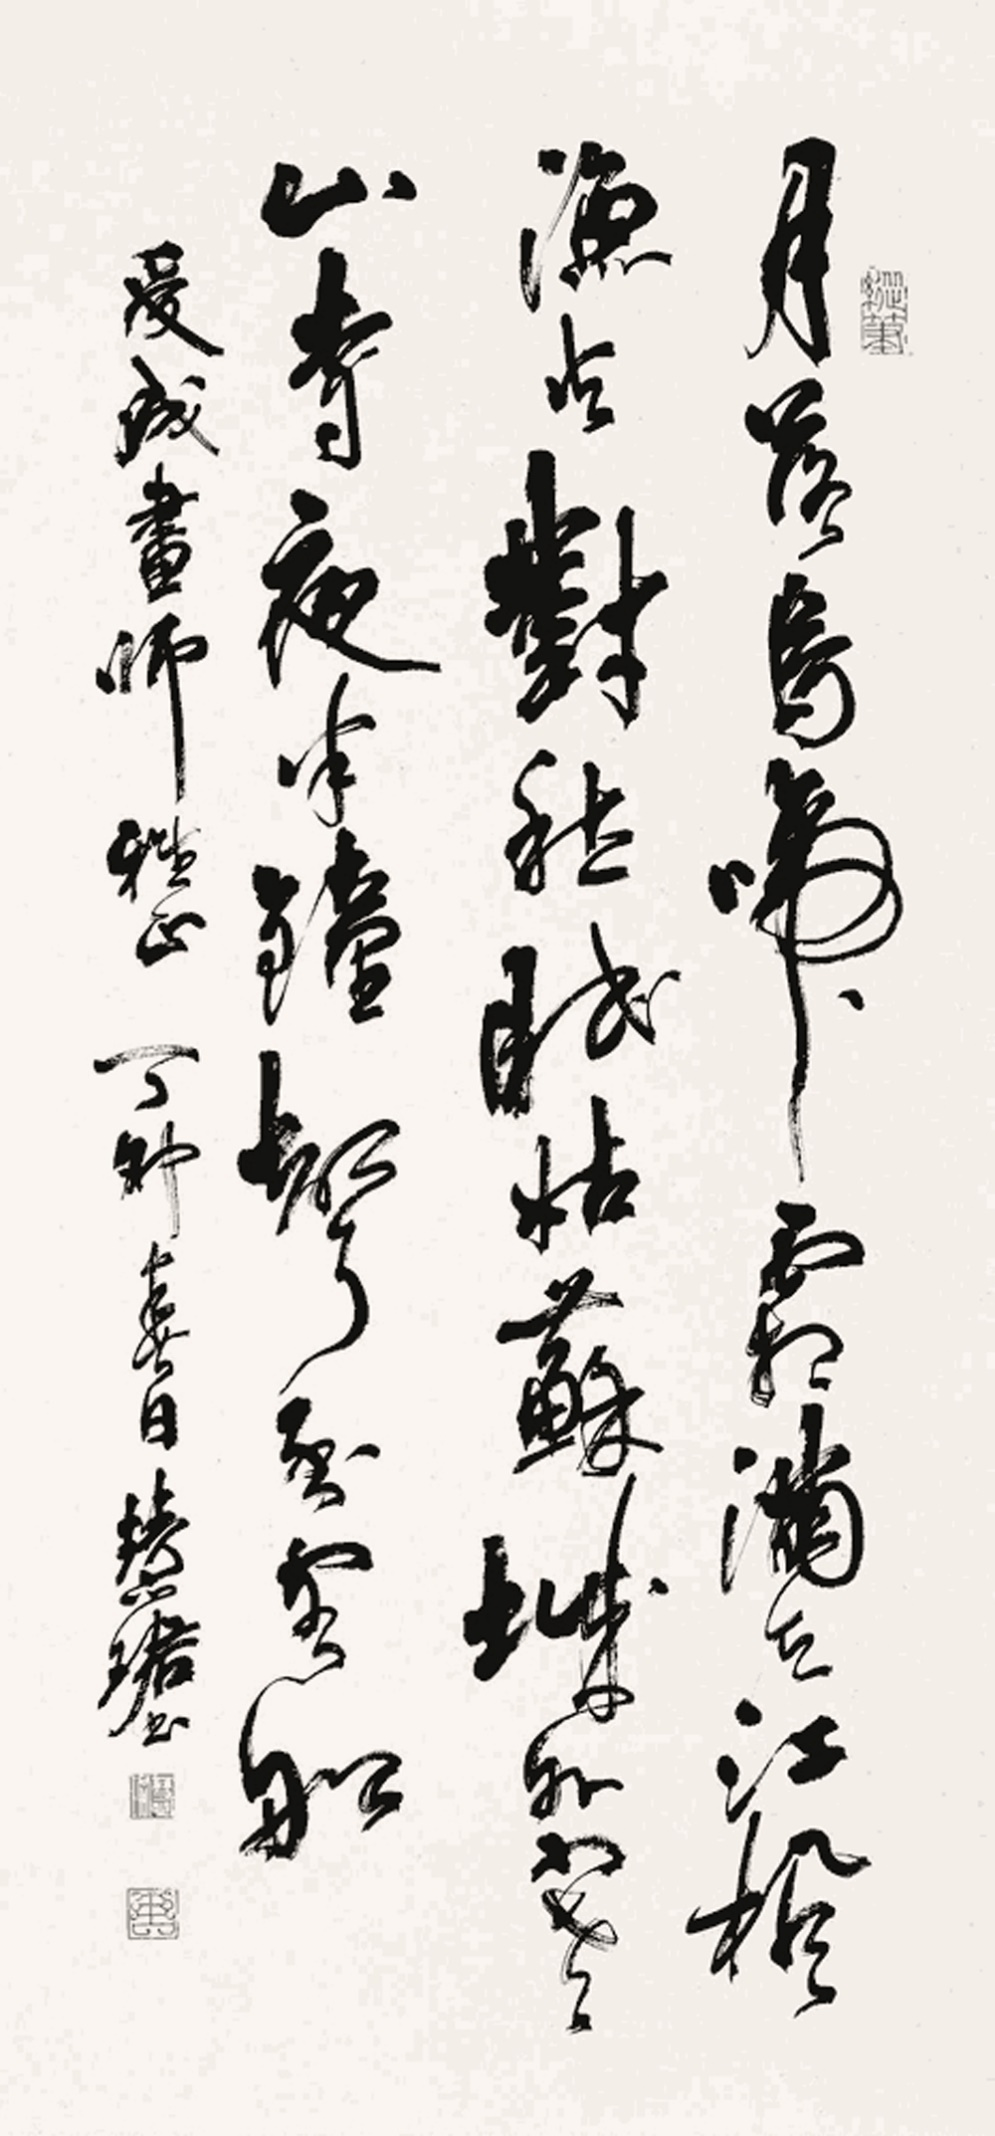 月落烏啼霜滿天江楓
漁火對愁眠姑蘇城外寒
山寺夜半鐘聲到客船
畫師雅正 丁卯春日 慧珺書